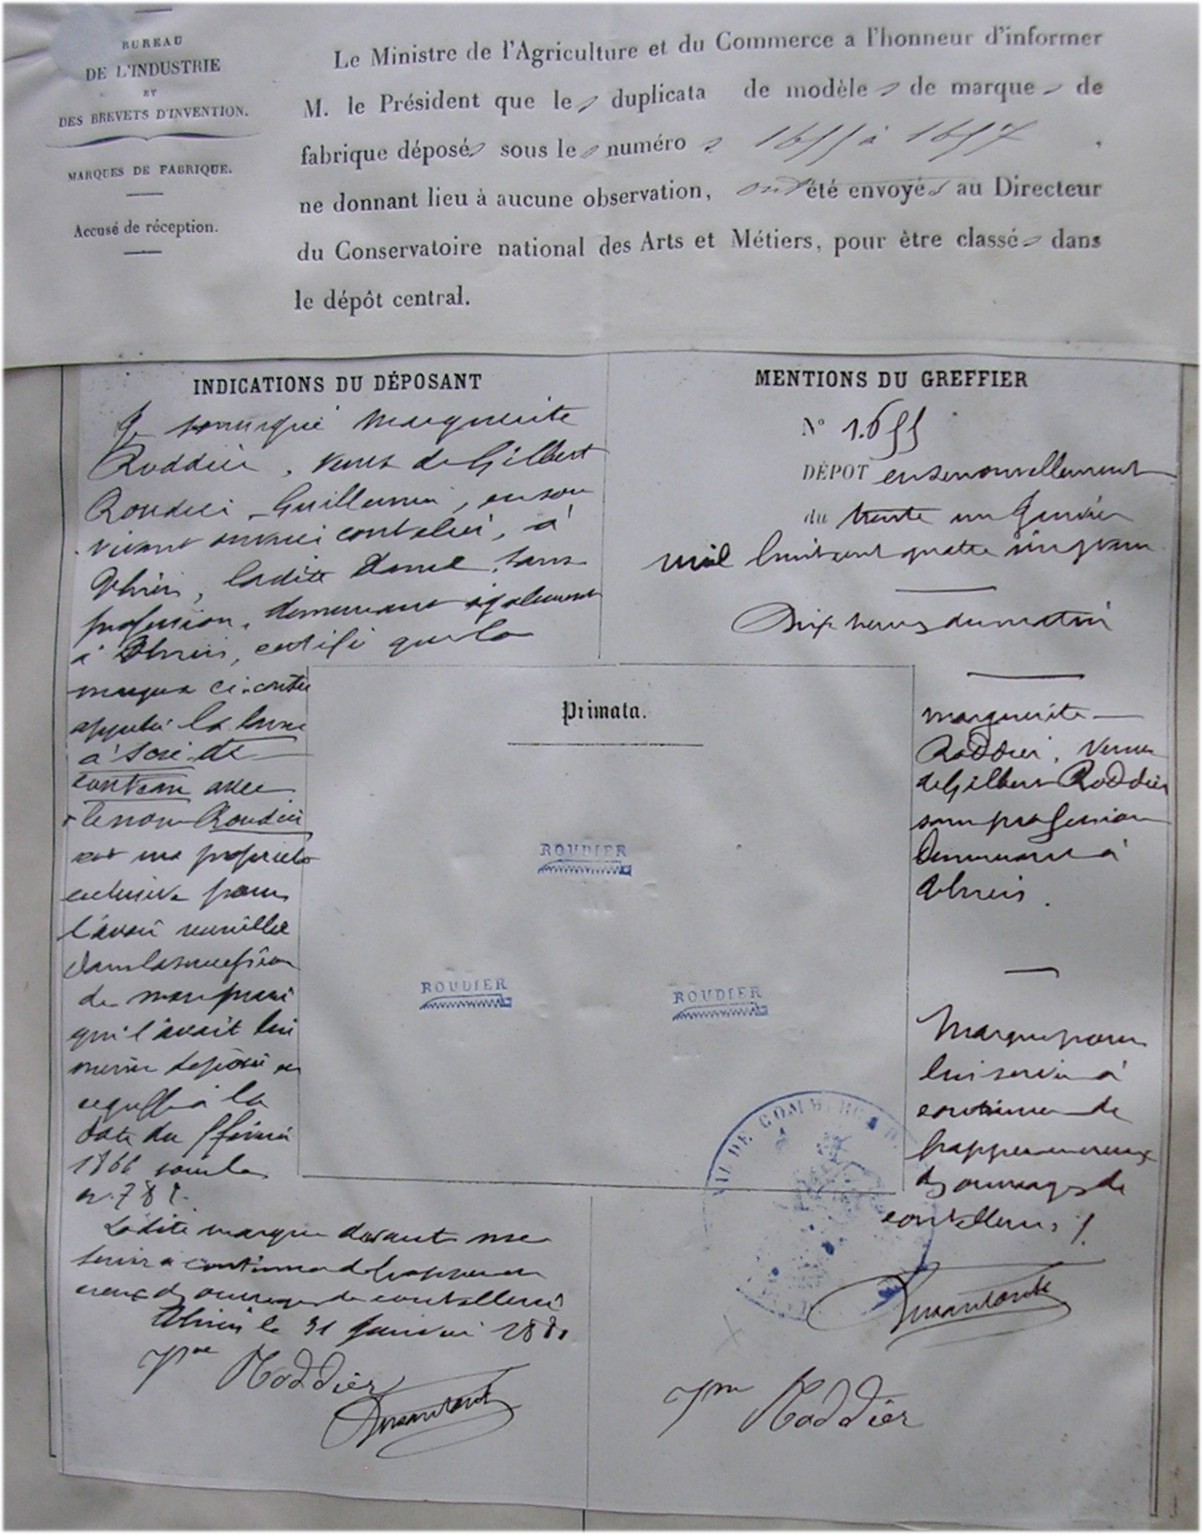 BUREAU
DE L'INDUSTRIE
ET
DES BREVETS D'INVENTION.
MARQUES DE FABRIQUE.
Accusé de réception.
Le Ministre de l'Agriculture et du Commerce a l'honneur d'informer
M. le Président que le duplicata de modèle de marque de
fabrique déposé sous le numéro 1655 à 1657
ne donnant lieu à aucune observation, ont été envoyés au Directeur
du Conservatoire national des Arts et Métiers, pour être classé dans
le dépôt central.
INDICATIONS DU DÉPOSANT
Marguerite
Roddier, veuve de Gilbert
Roudier Guillemin, en son
vivant ouvrier coutelier, à
Thiers, ladite Dame sans
profession, demeurant également
à Thiers, certifie que la
marque ci-contre
appelée la lame
à scie de
couteau avec
le nom Roudier
est ma propriété
exclusive pour
l'avoir recueillie
dans la succession
de mon mari
qui l'avait lui
même déposée au
greffe à la
date du février
1866 sous le
n. 781.
Ladite marque devant me
servir à continuer de frapper en
creux des ouvrages de coutellerie
Thiers le 31 Janvier 1881
Vve Roddier
MENTIONS DU GREFFIER
N° 1.655
DÉPOT en renouvellement
du trente un Janvier
mil huit cent quatre vingt un
Dix heures du matin
Marguerite
Roddier, Veuve
de Gilbert Roddier
sans profession
Demeurant à
Thiers.
Marque pour
lui servir à
continuer de
frapper en creux
des ouvrages de
coutellerie
Vve Roddier
Primata.
ROUDIER
ROUDIER
ROUDIER
DE COMMERCE